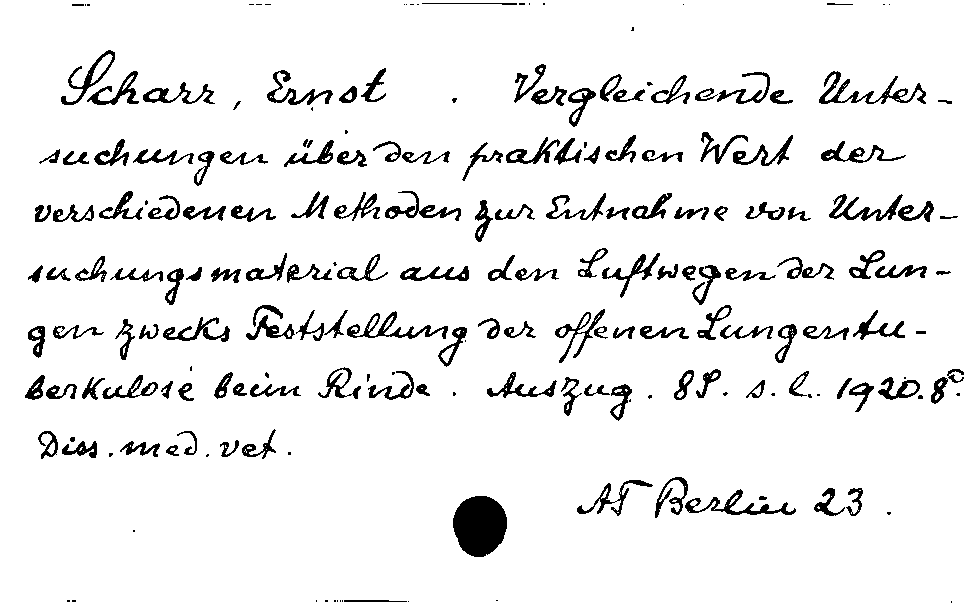 Scharr, Ernst . Vergleichende Unter-
suchungen über den praktischen Wert der
verschiedenen Methoden zur Entnahme von Unter-
suchungsmaterial aus den Luftwegen der Lun-
gen zwecks Feststellung der offenen Lungentu-
berkulose beim Rinde. Auszug. 8 S. s. l. 1920. 8°.
Diss. med. vet.
AT Berlin 23.